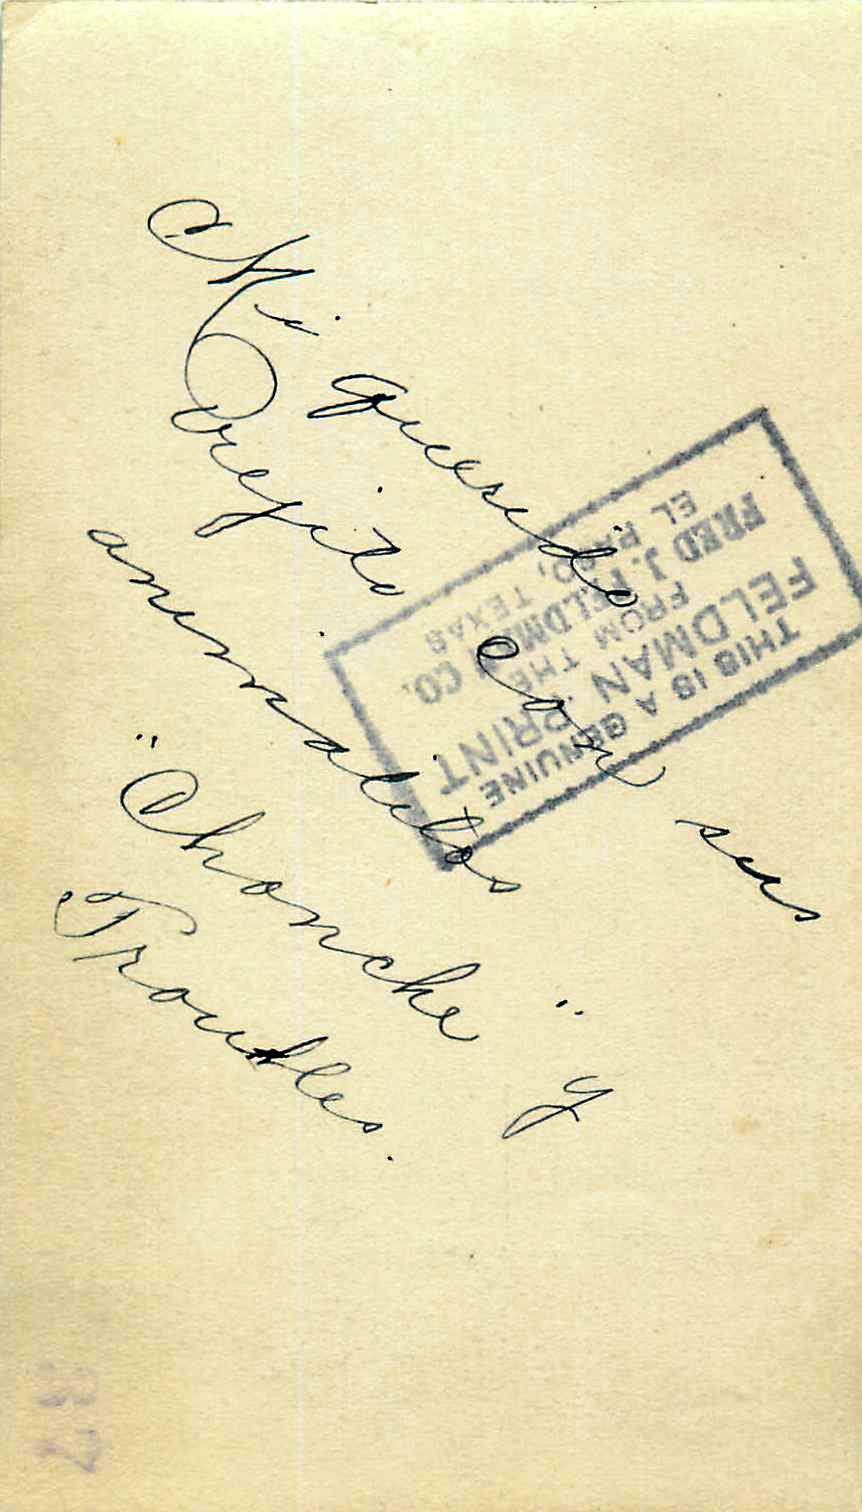 Mi querido
Viejito con sus
animalitos
"Chonche" y
Troubles.
THIS IS A GENUINE
FELDMAN PRINT
FROM THE
FRED J. FELDMAN CO.
EL PASO, TEXAS